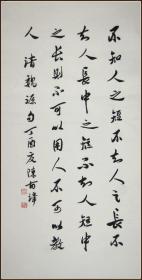 不知人之短不知人之長不
知人長中之短不知人短中
之長則不可以用人不可以教
人 清魏源句 丁酉夏陳